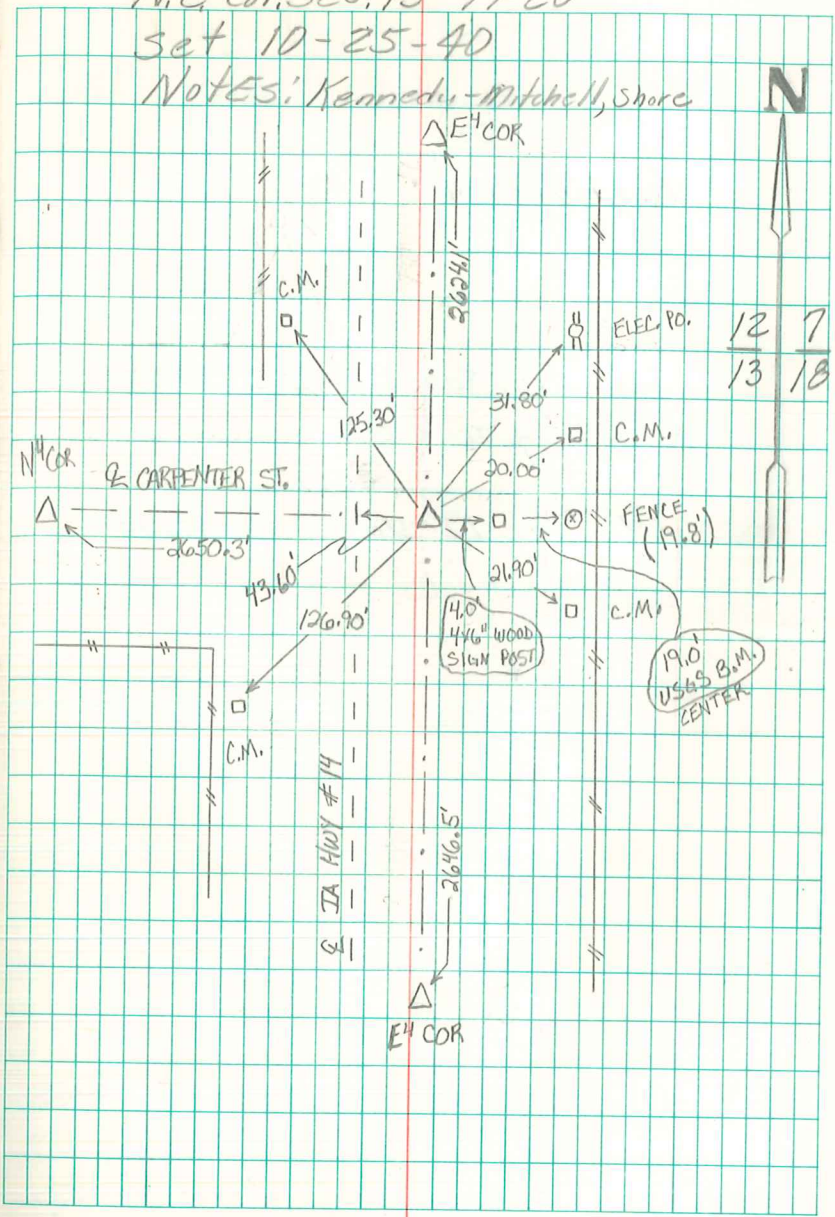 Set 10-25-40
Notes: Kennedy-Mitchell, Shore
N
E4 COR
2624.1'
C.M.
ELEC. PO.
12 7
13 18
125.30'
31.80'
C.M.
N4 COR
℄ CARPENTER ST.
20.00'
FENCE
(19.8')
2650.3'
43.60'
21.90'
126.90'
4.0'
4x6" WOOD
SIGN POST
C.M.
19.0'
USGS B.M.
CENTER
C.M.
℄ IA HWY #14
2646.5'
E4 COR